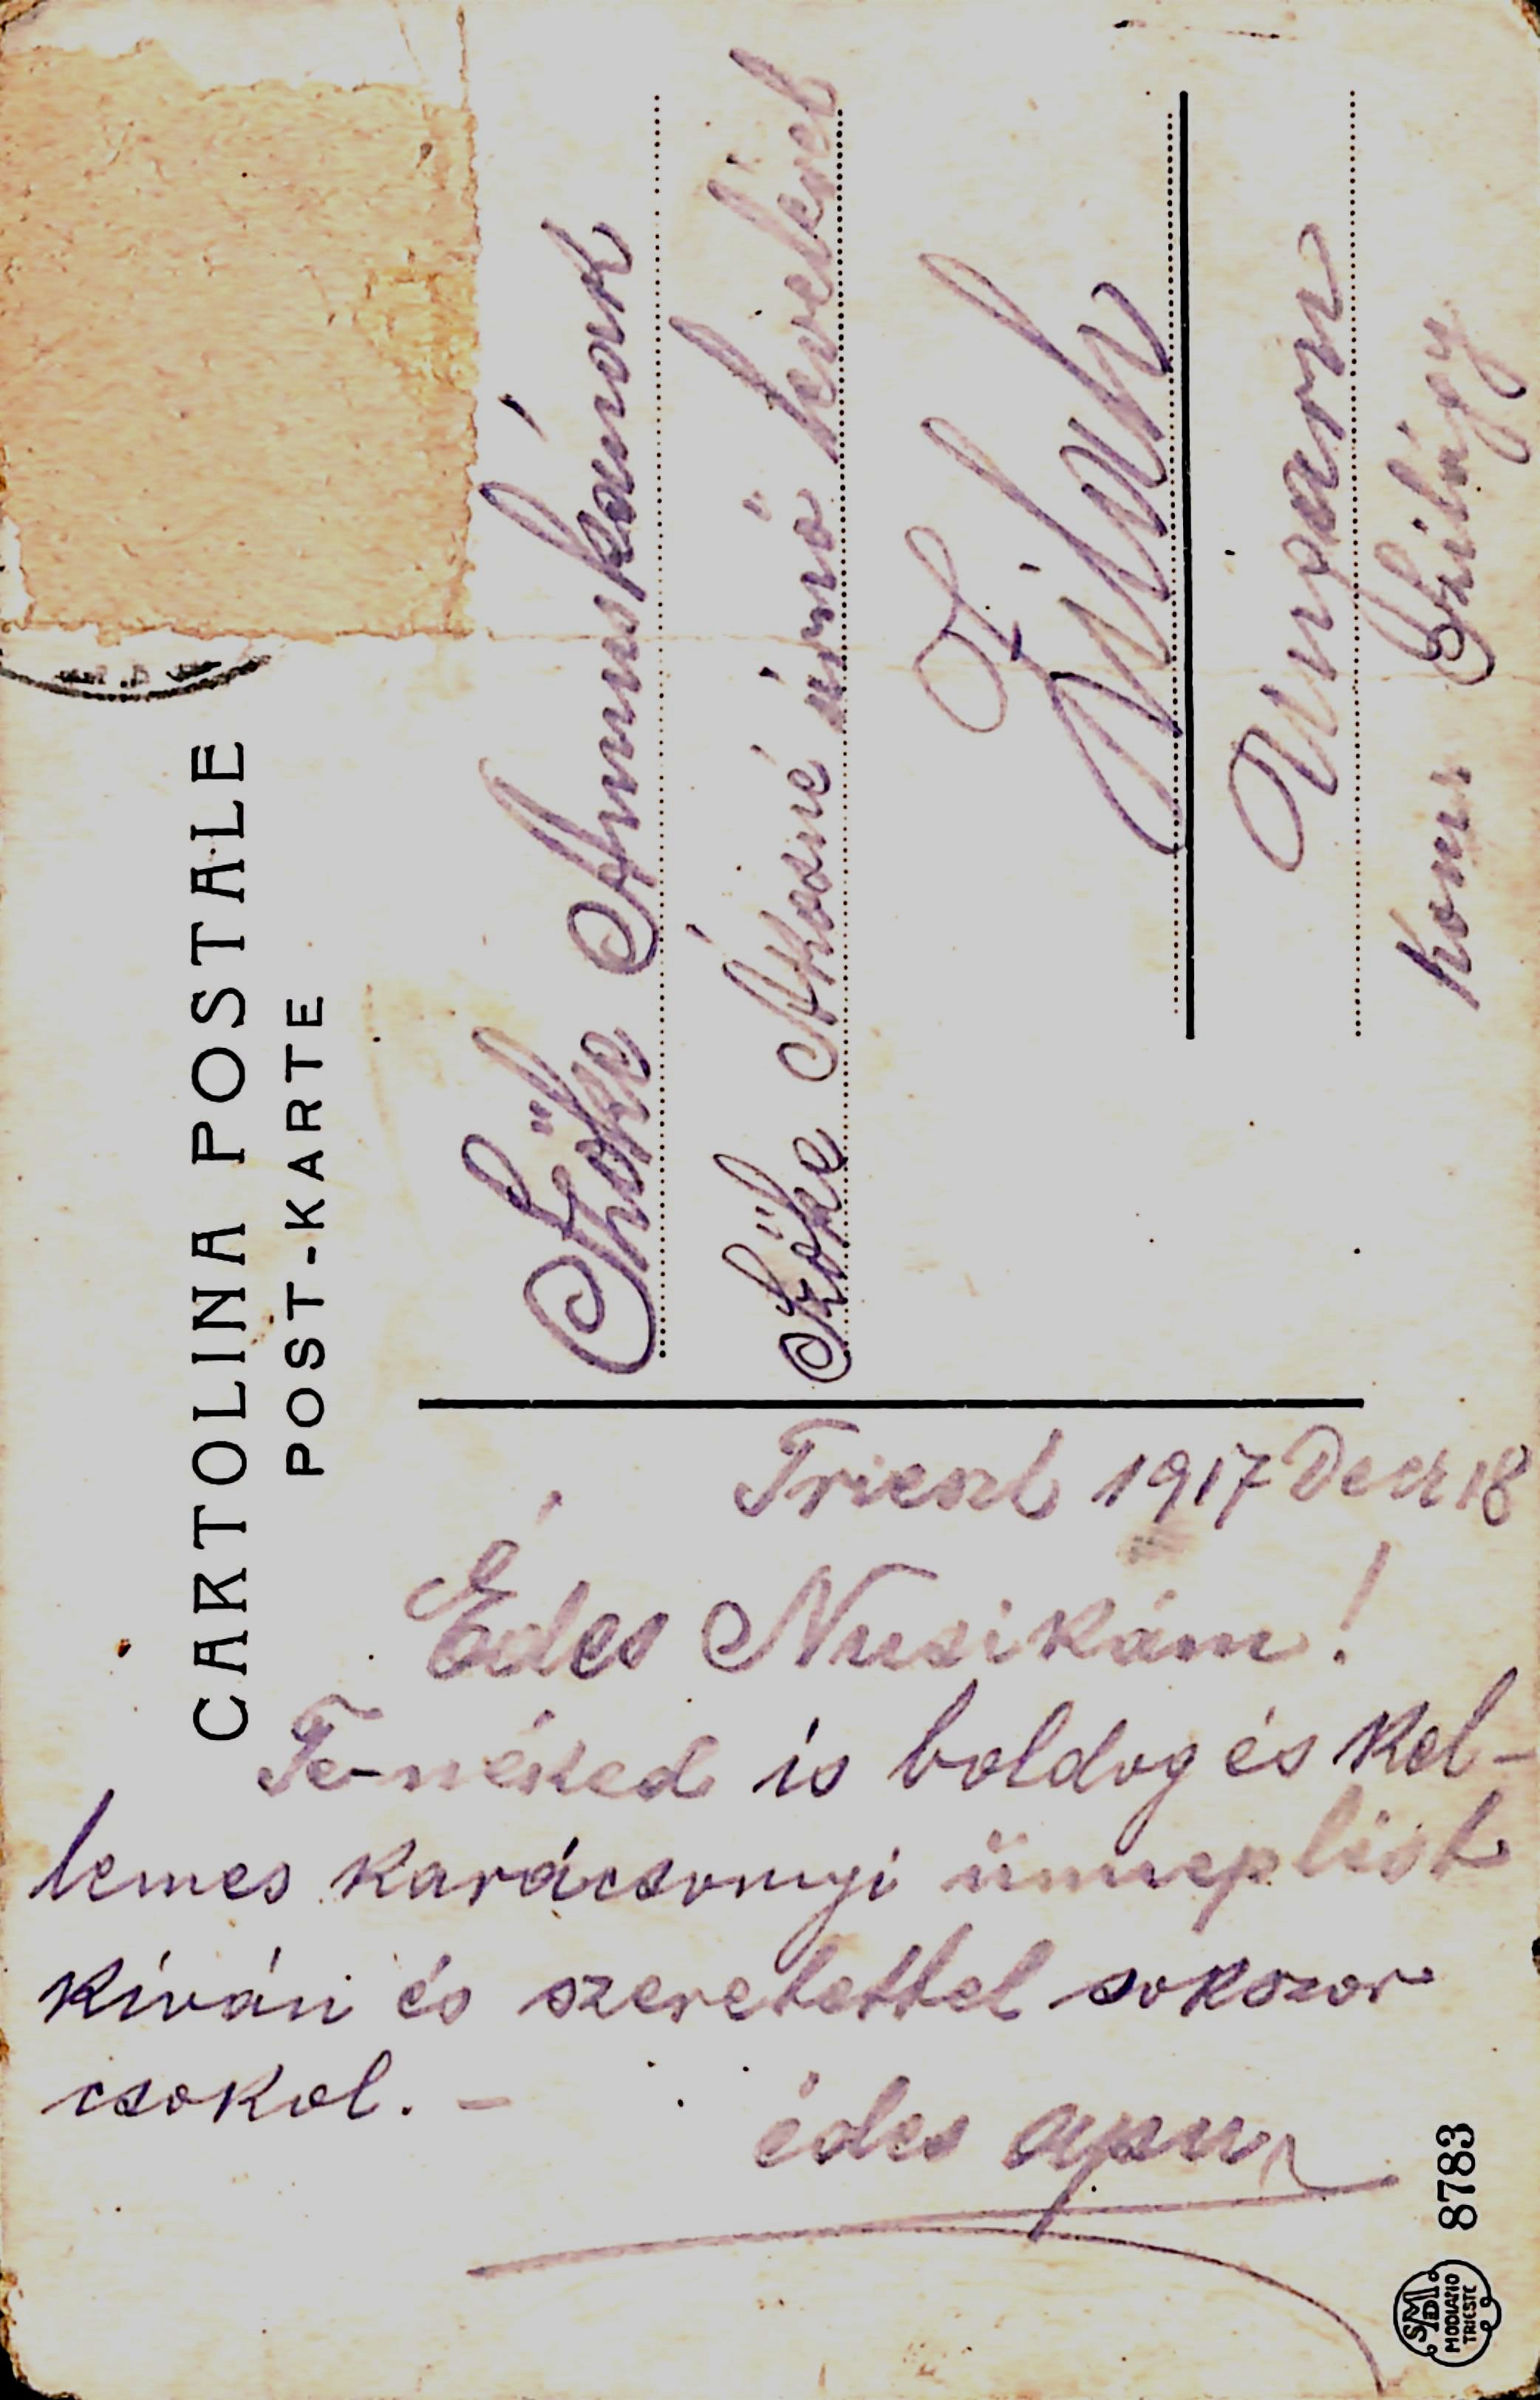 CARTOLINA POSTALE
POST-KARTE
Szőke Annuskának
Szőke Ákosné úrnő levelével
Zilah
Ungarn
Szilágy
Trieszt 1917 Decz 18
Édes Nusikám!
Te-néked is boldog és kel-
lemes karácsonyi ünneplést
kíván és szeretettel sokszor
csokol. -
édes apu
8783
SMD
MODIANO
TRIESTE